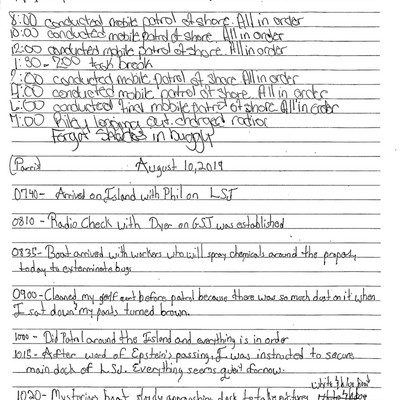 8:00 conducted mobile patrol of shore. All in order
10:00 conducted mobile patrol of shore. All in order
12:00 conducted mobile patrol of shore. All in order
1:30-2:00 took break
2:00 conducted mobile patrol of shore. All in order
4:00 conducted mobile patrol of shore. All in order
6:00 conducted final mobile patrol of shore. All in order
7:00 Riley logging out. charged radios
Forgot in buggy
August 10, 2019
0740- Arrived on Island with Phil on LSJ
0810- Radio Check with Dyer on GSJ was established
0835- Boat arrived with workers who will spray chemicals around the property
today to exterminate bugs
0900- Cleaned my golf cart before patrol because there was so much dust on it when
I sat down my pants turned brown.
1000- Did Patrol around the Island and everything is in order
1015- After word of Epstein's passing, I was instructed to secure
main dock of LSJ. Everything seems quiet for now.
1020- boat slowly approaching dock to take pictures